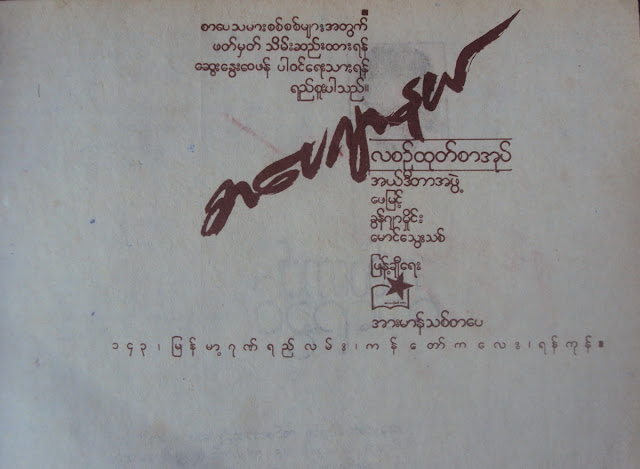 စာပေသမားစစ်စစ်များအတွက်
ဖတ်မှတ် သိမ်းဆည်းထားရန်
ဆွေးနွေးဝေဖန် ပါဝင်ရေးသားရန်
ရည်စူးပါသည်။
စာပေဂျာနယ်
လစဉ်ထုတ်စာအုပ်
အယ်ဒီတာအဖွဲ့
ဖေမြင့်
ခွန်ဂျာမှိုင်း
မောင်သွေးသစ်
ဖြန့်ချိရေး
အားမာန်သစ်စာပေ
၁၄၃ ၊ မြန်မာ့ဂုဏ်ရည်လမ်း ၊ ကန်တော်ကလေး ၊ ရန်ကုန် ။